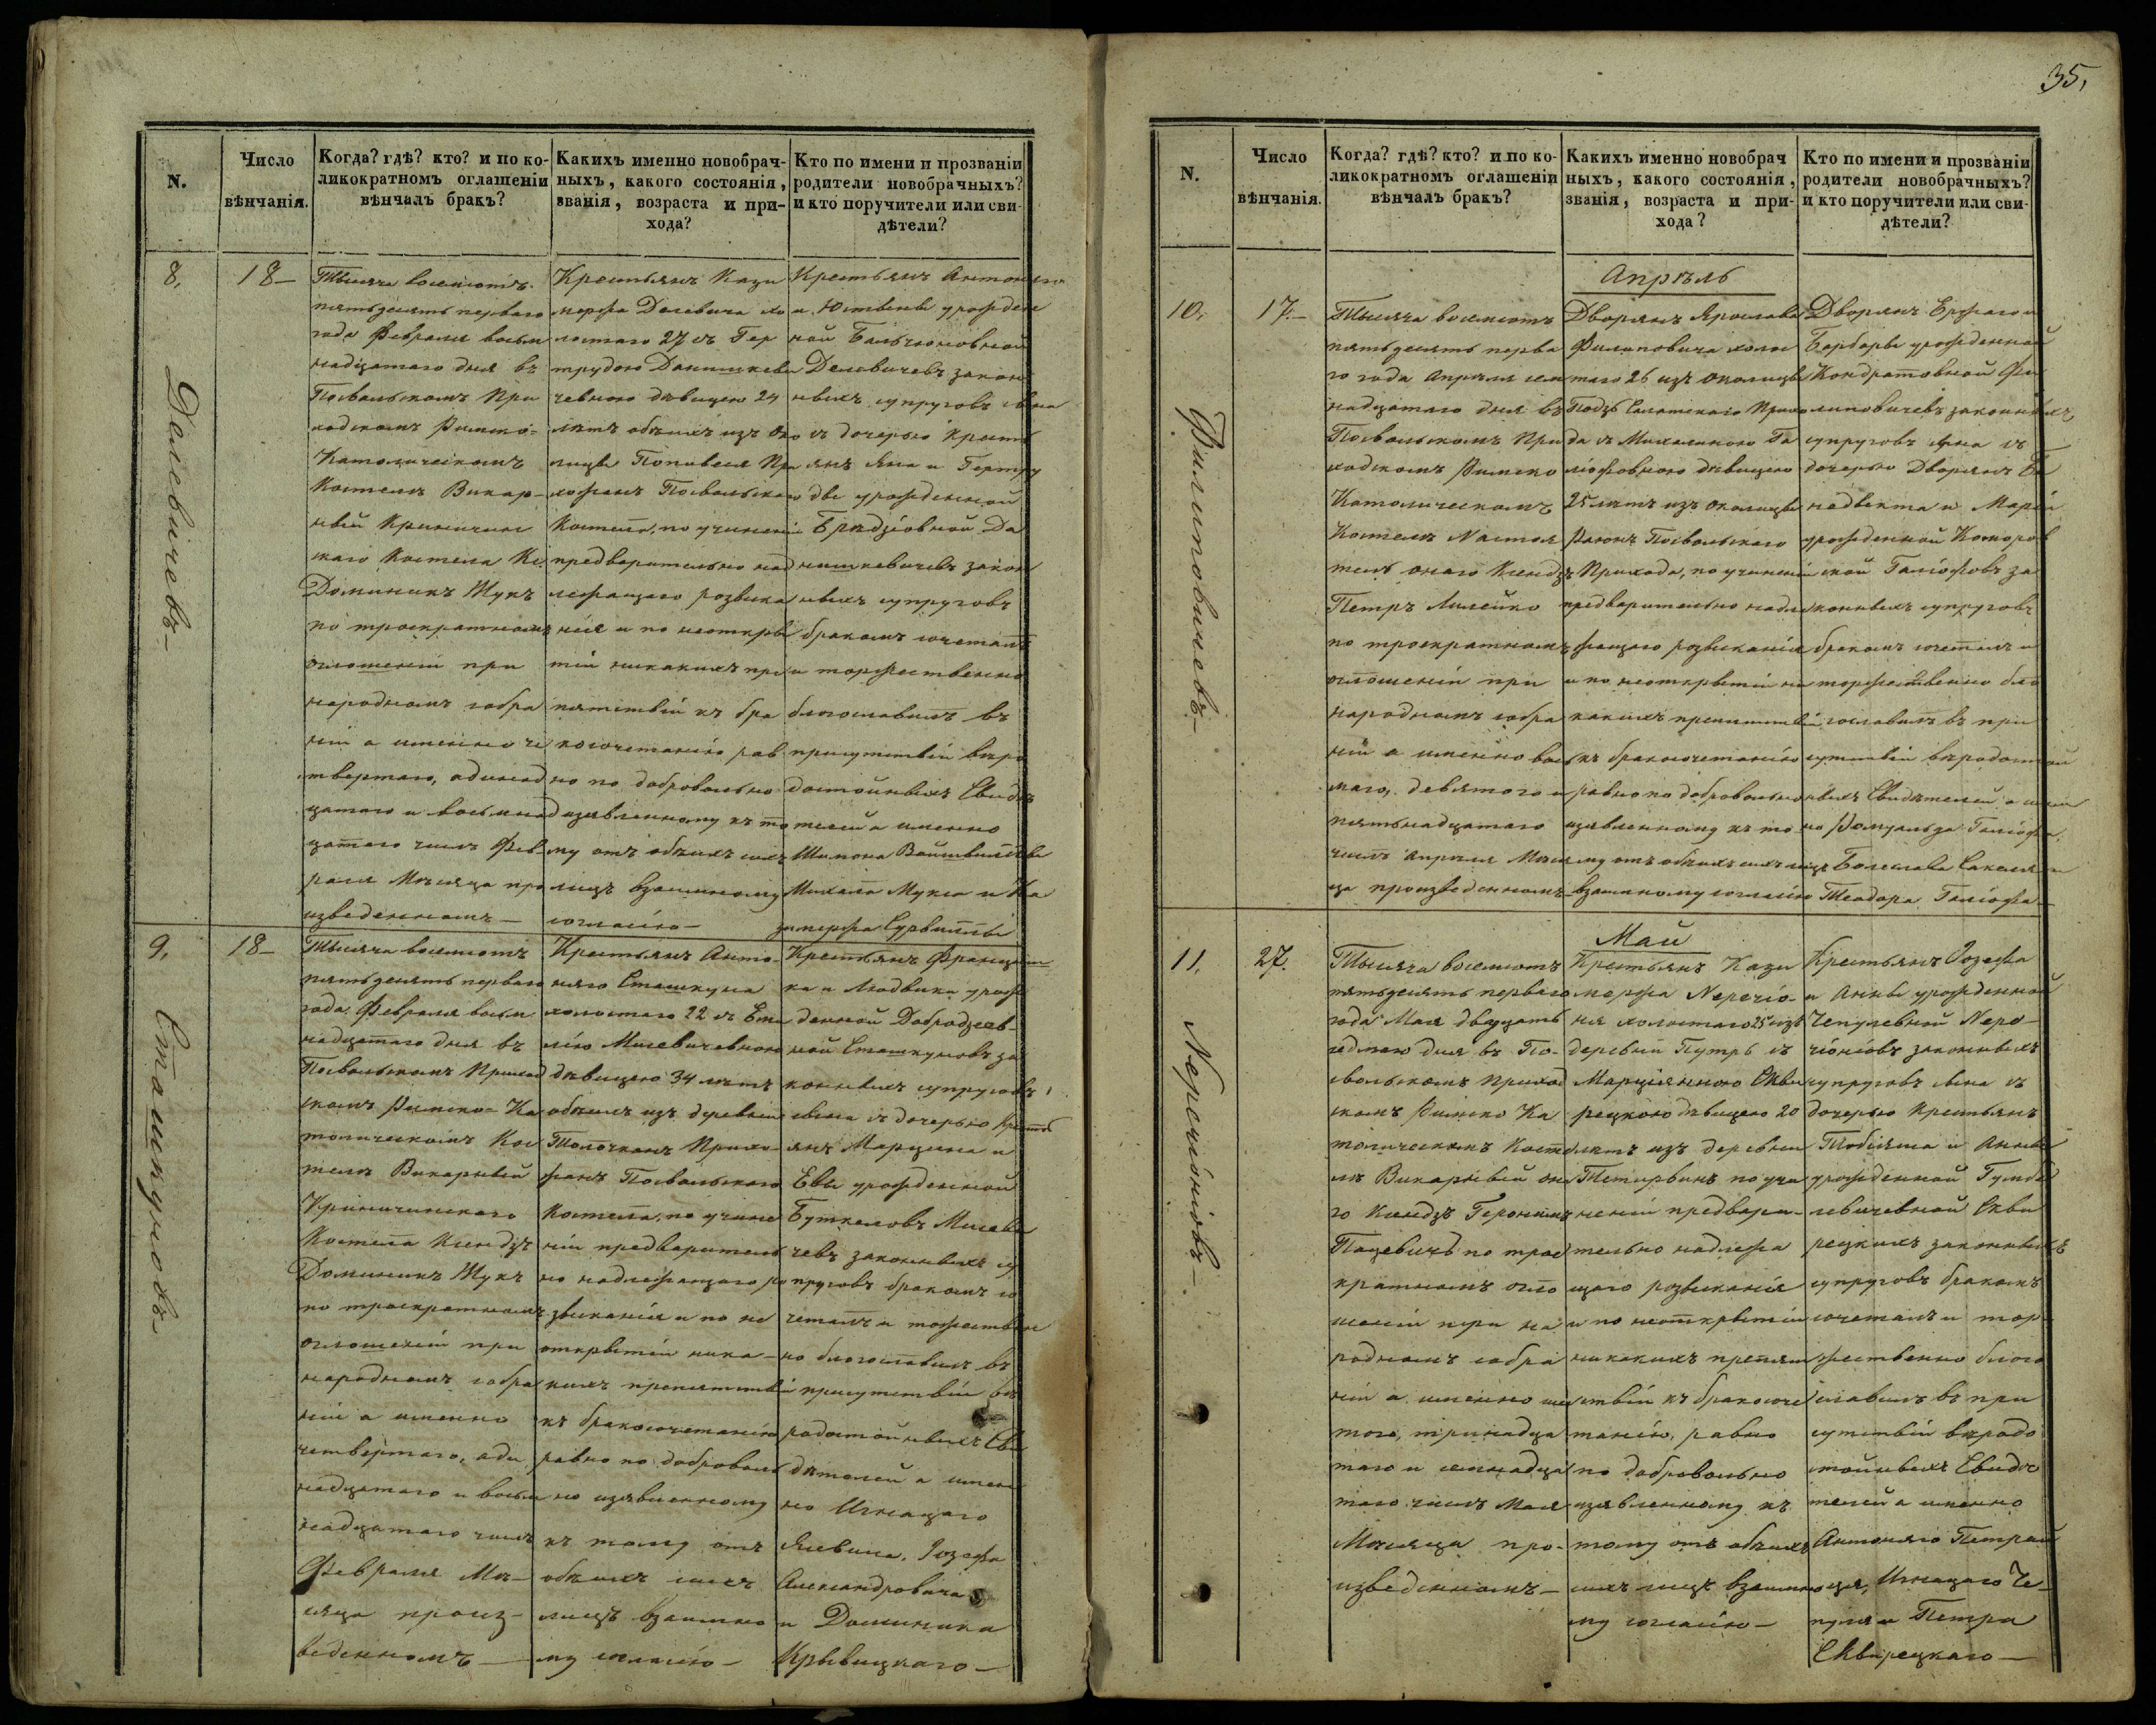 35,
N.
Число
вѣнчанія.
Когда? гдѣ? кто? и по ко-
ликократномъ оглашеніи
вѣнчалъ бракъ?
Какихъ именно новобрач-
ныхъ, какого состоянія,
званія, возраста и при-
хода?
Кто по имени и прозванію
родители новобрачныхъ?
и кто поручители или сви-
дѣтели?
8.
18-
Делевичевъ-
Тысяча восемсотъ
пятьдесятъ перваго
года Февраля восьм
надцатаго дня въ
Посвольскомъ При
ходскомъ Римско-
Католическомъ
Костелѣ Викар-
ный Криничин
скаго Костела Кс.
Доминикъ Жукъ
по троекратномъ
оглошеніи при
народномъ собра
ніи а именно че
твертаго, одинад
цатаго и восьмнад
цатаго числъ Фев
раля Мѣсяца про
изведенномъ-
Крестьянъ Кази
мержа Делевича хо
лостаго 27 съ Гер
трудою Данишкеви
чевною дѣвицею 24
лѣтъ обѣихъ изъ око
лицы Поповеся При
хожанъ Посвольскаго
Костела, по учиненіи
предварительно над
лежащаго розыска
нія и по неоткры
тіи никакихъ пре
пятствій къ бра
косочетанію рав
но по добровольно
изъявленному къ то
му отъ обѣихъ сихъ
лицъ взаимному
согласію-
Крестьянъ Антонего
и Юстыны урожден
ной Бальчюновной
Делевичевъ закон
ныхъ супруговъ сына
съ дочерью Кресть
янъ Яна и Гертру
ды урожденной
Брадзіовной Да
нишкевичевъ закон
ныхъ супруговъ
бракомъ сочеталъ
и торжественно
благославилъ въ
присутствіи вѣро
достойныхъ Свидѣ
телей а именно
Шимона
Михала Мукси и Ка
зимержа
9.
18-
Сташкуновъ
Тысяча восемсотъ
пятьдесятъ перваго
года Февраля восьм
надцатаго дня въ
Посвольскомъ Приход
скомъ Римско-Ка
толическомъ Кос
телѣ Викарный
Криничинскаго
Костела Ксендзъ
Доминикъ Жукъ
по троекратномъ
оглошеніи при
народномъ собра
ніи а именно
четвертаго, оди
надцатаго и восьм
надцатаго числъ
Февраля Мѣ-
сяца произ-
веденномъ-
Крестьянъ Анто-
няго Сташкуна
холостаго 22 съ Еми
лію Мисевичевною
дѣвицею 34 лѣтъ
обѣихъ изъ деревни
Толочканъ Прихо-
жанъ Посвольскаго
Костела, по учине
ніи предваритель
но надлежащаго ро
зысканія и по не
открытіи ника-
кихъ препятствій
къ бракосочетанію
равно по доброволь
но изъявленному
къ тому отъ
обѣихъ сихъ
лицъ взаимно
му согласію-
Крестьянъ Францишъ
ка и Людвики урож
денной
ной Сташкуновъ за
конныхъ супруговъ
сына съ дочерью Кресть
янъ Марцина и
Евы урожденной
Буткеловъ Мисеви
чевъ законныхъ су
пруговъ бракомъ со
четалъ и тожествен
но благославилъ въ
присутствіи вѣ
родостойныхъ Сви
дѣтелей а имен
но Игнацаго
Ясевича, Іозефа
Александровича
и Доминика
Крывицкаго-
N.
Число
вѣнчанія.
Когда? гдѣ? кто? и по ко-
ликократномъ оглашеніи
вѣнчалъ бракъ?
Какихъ именно новобрач
ныхъ, какого состоянія,
званія, возраста и при-
хода?
Кто по имени и прозванію
родители новобрачныхъ?
и кто поручители или сви-
дѣтели?
Апрѣль
10.
17.-
Филиповичевъ-
Тысяча восемсотъ
пятьдесятъ перва
го года Апрѣля сем
надцатаго дня въ
Посвольскомъ При
ходскомъ Римско
Католическомъ
Костелѣ Настоя
тель онаго Ксендзъ
Петръ Лилейко
по троекратномъ
оглошеніи при
народномъ собра
ніи а именно вось
маго, девятого и
пятьнадцатаго
числъ Апрѣля Мѣся
ца произведенномъ
Дворянъ Ярослава
Филиповича холос
таго 26 изъ околицы
Подзь Салатскаго Прихо
да съ Михалиною Га
ліофовною дѣвицею
25 лѣтъ изъ околицы
Раюнъ Посвольскаго
Прихода, по учиненіи
предварительно надле
жащаго розысканія
и по неоткрытіи ни
какихъ препятствій
къ бракосочетанію
равно по добровольно
изъявленному къ то
му отъ обѣихъ сихъ лицъ
взаимному согласію
Дворянъ Ержаго и
Барбары урожденной
Кондратовной Фи
липовичевъ законныхъ
супруговъ сына съ
дочерью Дворянъ Бе
недыкта и Маріи
урожденной Комаров
ской Галіофовъ за
конныхъ супруговъ
бракомъ сочеталъ и
торжественно бла
гославилъ въ при
сутствіи вѣродостой
ныхъ Свидѣтелей а имен
но Ромуальда Галіофа,
Болеслава
Теодора Галіофа-
Май
11.
27.
Неречіоніовъ-
Тысяча восемсотъ
пятьдесятъ перваго
года Мая двадцать
седмаго дня въ По-
свольскомъ Приход
скомъ Римско Ка
толическомъ Косте
лѣ Викарный она
го Ксендзъ Геронимъ
Пацевичъ по трое
кратномъ огло
шеніи при на
родномъ собра
ніи а именно шес
того, тринадца
таго и семнадца
таго числъ Мая
Мѣсяца про-
изведенномъ-
Крестьянъ Кази
мержа Неречіо-
ня холостаго 25 изъ
деревни Путръ съ
Марціянною Скви
рецкою дѣвицею 20
лѣтъ изъ деревни
Тетирвинъ по учи
неніи предвари-
тельно надлежа
щаго розысканія
и по неоткрытіи
никакихъ препят
ствій къ бракосоче
танію, равно
по добровольно
изъявленному къ
тому отъ обѣихъ
сихъ лицъ взаимно
му согласію-
Крестьянъ Іозефа
и Анны урожденной
Чепулевной Нере-
чіоніовъ законныхъ
супруговъ сына съ
дочерью Крестьянъ
Тобіяша и Анны
урожденной Гумбе
левичевной Скви
рецкихъ законныхъ
супруговъ бракомъ
сочеталъ и тор
жественно благо
славилъ въ при
сутствіи вѣродо
стойныхъ Свидѣ
телей а именно
Антоняго Петрай
ця, Игнацаго Че-
пуля и Петра
Сквирецкаго-